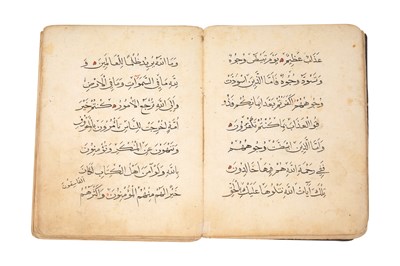 عذاب عظيم يوم تبيض وجوه
وتسود وجوه فاما الذين اسودت
وجوههم اكفرتم بعد ايمانكم فذو
قوا العذاب بما كنتم تكفرون
واما الذين ابيضت وجوههم
ففي رحمة الله هم فيها خالدون
تلك آيات الله نتلوها عليك بالحق
وما الله يريد ظلما للعالمين
لله ما في السموات وما في الارض
والى الله ترجع الامور كنتم خير
امة اخرجت للناس تأمرون بالمعروف
وتنهون عن المنكر وتؤمنون
بالله ولو آمن اهل الكتاب لكان
خيرا لهم منهم المؤمنون واكثرهم
الفاسقون